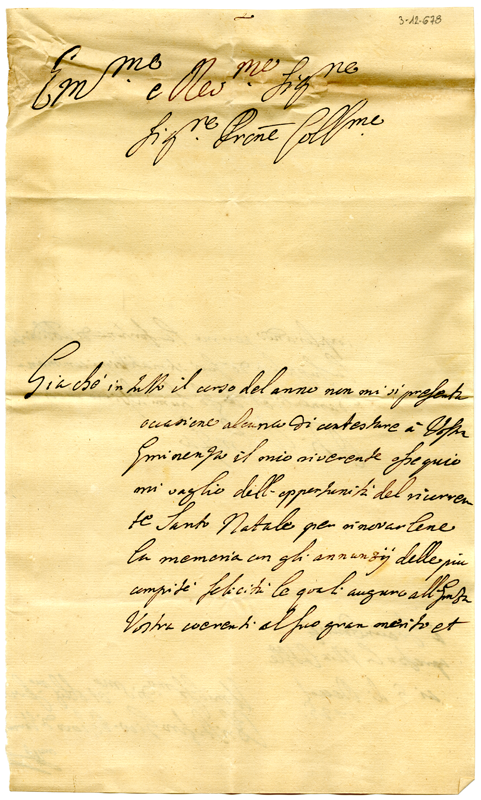 3-12-678
Em.me e Reu.me Sig.re
Sig.re Prone Coll.me
Gia che in tutto il corso del anno non mi si presenta
occasione alcuna di contestare à Vostra
Eminenza il mio riverente ossequio
mi vaglio dell'opportunità del ricorren
te Santo Natale per rinovarlene
la memoria con gli annunzij delle piu
compite felicità le quali auguro all'Emza
Vostra coerenti al suo gran merito et